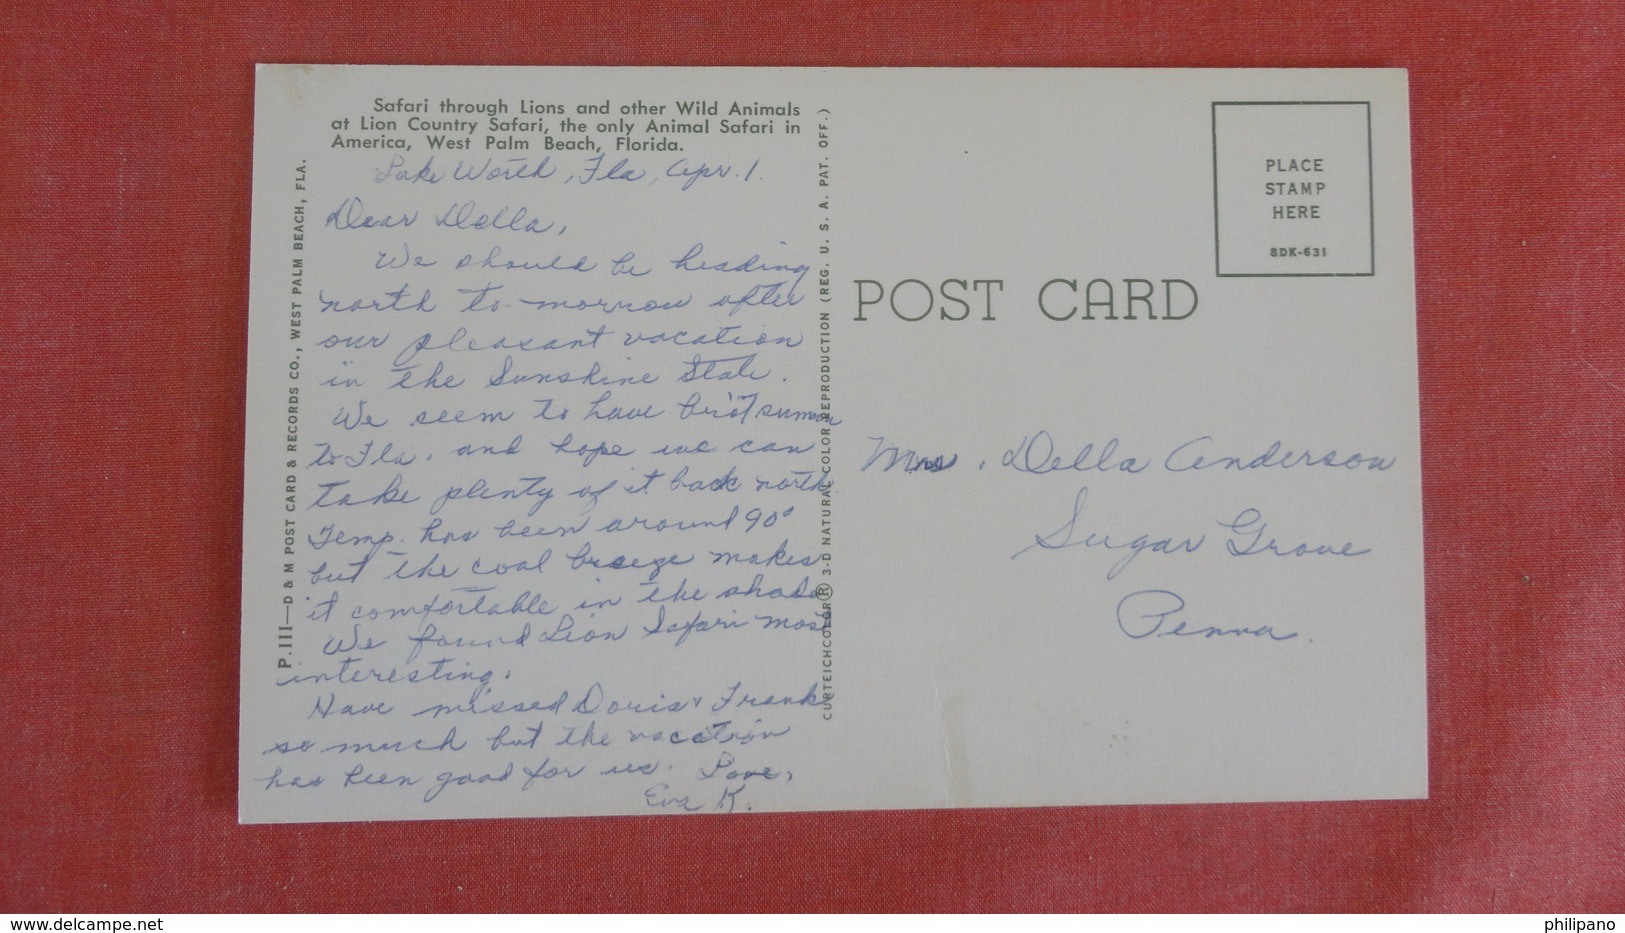 Safari through Lions and other Wild Animals
at Lion Country Safari, the only Animal Safari in
America, West Palm Beach, Florida.
Lake Worth, Fla, Apr. 1.
Dear Della,
We should be heading
north to-morrow after
our pleasant vacation
in the Sunshine State.
We seem to have bro't summer
to Fla. and hope we can
take plenty of it back north
Temp. has been around 90°
but the cool breeze makes
it comfortable in the shade
We found Lion Safari most
interesting.
Have missed Doris & Frank
so much but the vacation
has been good for us. Love,
Eva K.
P.III—D & M POST CARD & RECORDS CO., WEST PALM BEACH, FLA.
CURTEICHCOLOR® 3-D NATURAL COLOR REPRODUCTION (REG. U. S. A. PAT. OFF.)
PLACE
STAMP
HERE
8DK-631
POST CARD
Mrs. Della Anderson
Sugar Grove
Penna.
http://www.delcampe.net
philipano